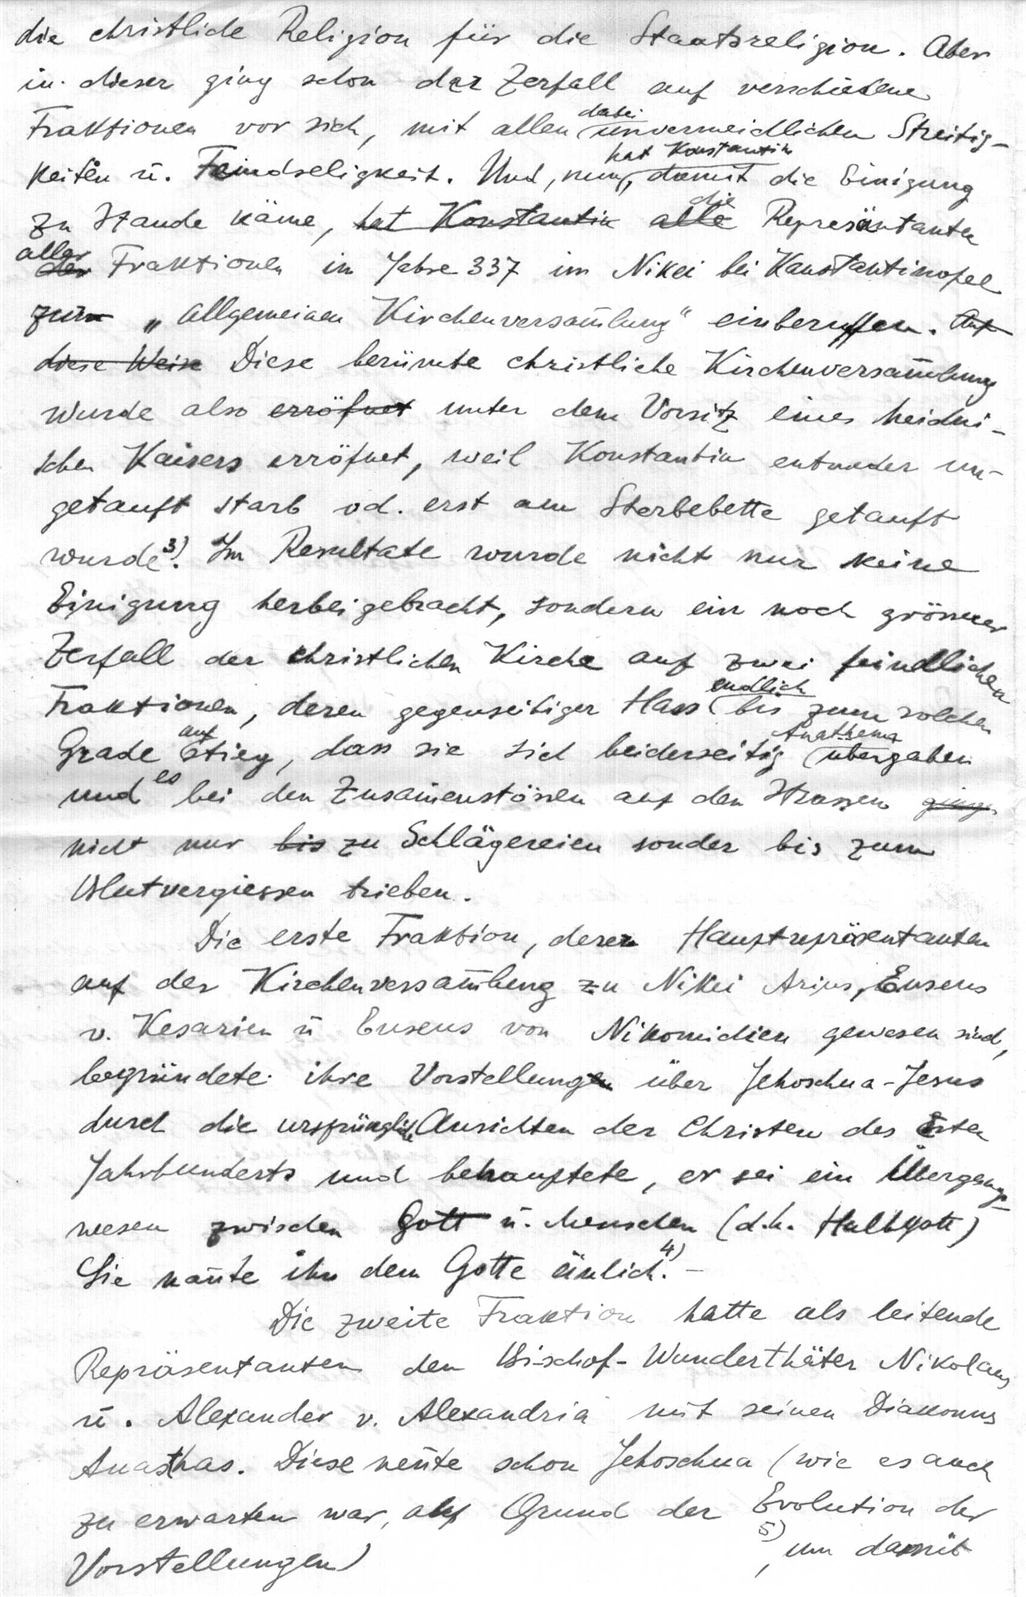 die christliche Religion für die Staatsreligion. Aber
in dieser ging schon der Zerfall auf verschiedene
dabei
Fraktionen vor sich, mit allen unvermeidlichen Streitig-
hat Konstantin
keiten u. Feindseligkeit. Und, nun, damit die Einigung
die
zu Stande käme, hat Konstantin alle Repräsäntanten
aller
der Fraktionen im Jahre 337 im Nikei bei Konstantinopel
zur „allgemeinen Kirchenversam̅lung" einberuffen. Auf
diese Weise Diese berümte christliche Kirchenversam̅lung
wurde also erröfnet unter dem Vorsitz eines heidni-
schen Kaisers erröfnet, weil Konstantin entweder un-
getauft starb od. erst am Sterbebette getauft
wurde³⁾. Im Resultate wurde nicht nur keine
Einigung herbeigebracht, sondern ein noch grösserer
Zerfall der christlichen Kirche auf zwei feindlichen
endlich
Fraktionen, deren gegenseitiger Hass bis zum solchen
auf Anathema
Grade stieg, dass sie sich beiderseitig übergaben
es
und bei den Zusam̅enstössen auf den Strassen ging
nicht nur bis zu Schlägereien sonder bis zum
Blutvergiessen trieben.
Die erste Fraktion, deren Hauptrepräsentanten
auf der Kirchenversam̅lung zu Nikei Arius, Euseus
v. Kesarien u Euseus von Nikomidien gewesen sind,
begründete ihre Vorstellungen über Jehoschua-Jesus
durch die ursprünglich Ansichten der Christen des Ersten
Jahrhunderts und behauptete, er sei ein Übergangs-
wesen zwischen Gott u. Menschen (d.h. Halbgott)
Sie nan̅te ihn dem Gotte änlich.⁴⁾ –
Die zweite Fraktion hatte als leitende
Repräsentanten den Bischof-Wunderthäter Nikolaus
u. Alexander v. Alexandria mit seinen Diakonus
Anasthas. Diese nen̅te schon Jehoschua (wie es auch
zu erwarten war, auf Grund der Evolution der
Vorstellungen) ⁵⁾, um damit